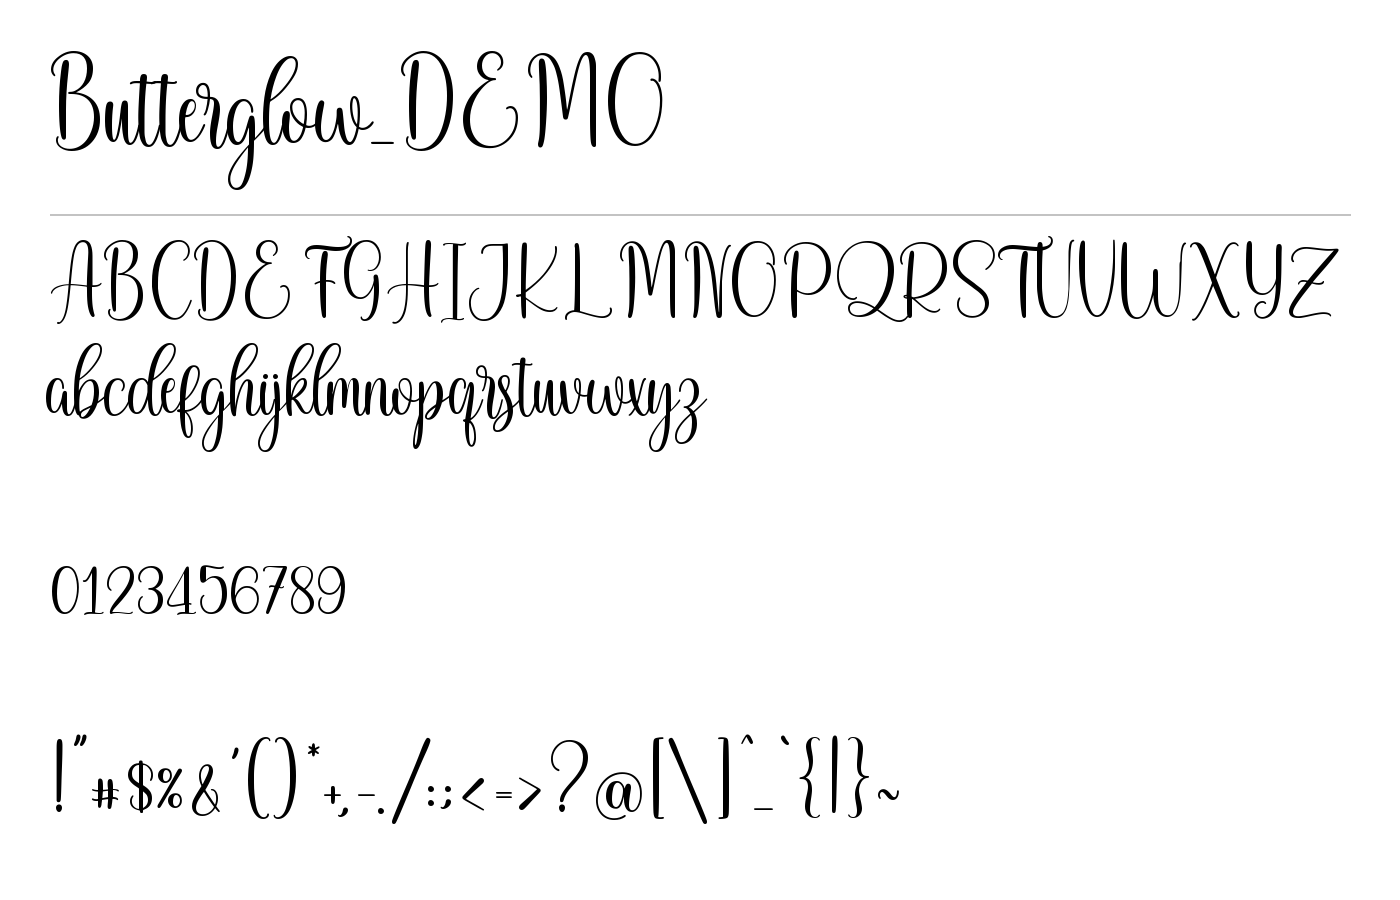 Butterglow_DEMO
ABCDEFGHIJKLMNOPQRSTUVWXYZ
abcdefghijklmnopqrstuvwxyz
0123456789
!"#$%&'()*+,-./:;<=>?@[\]^_`{|}~